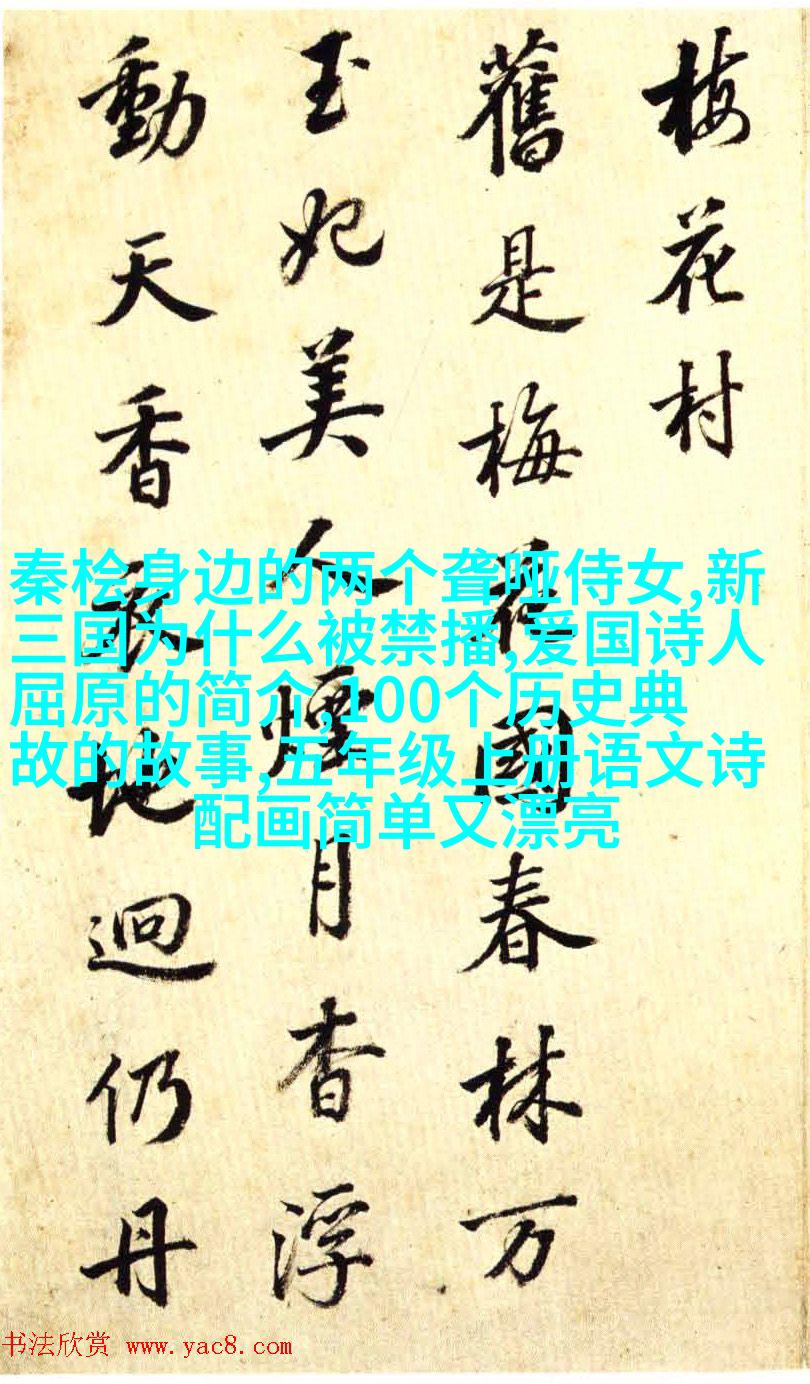 梅花村
舊是梅花國春林万
玉妃美人煙月杳浮
動天香地迥仍丹
秦桧身边的两个聋哑侍女,新
三国为什么被禁播,爱国诗人
屈原的简介,100个历史典
故的故事,五年级上册语文诗
配画简单又漂亮
书法欣赏 www.yac8.com